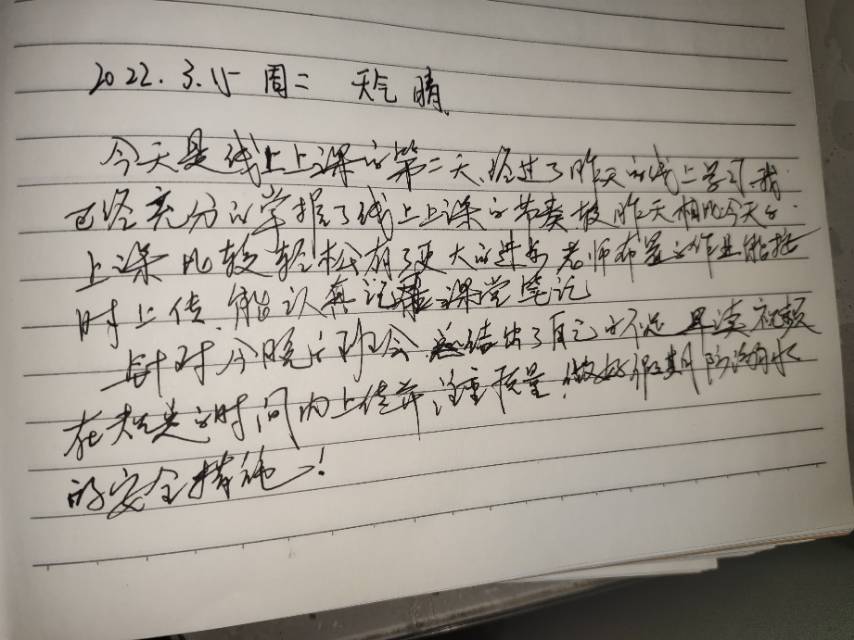 2022.3.15 周二 天气 晴
今天是线上上课的第二天,经过了昨天的线上学习,我
已经充分的掌握了线上上课的节奏,较昨天相比今天的
上课比较轻松有了更大的进步 老师布置的作业能按
时上传,能认真记 课堂笔记
针对今晚的班会 总结出了自己的不足 早读视频
在规定的时间内上传并注重质量,做好假期防溺水
的安全措施!